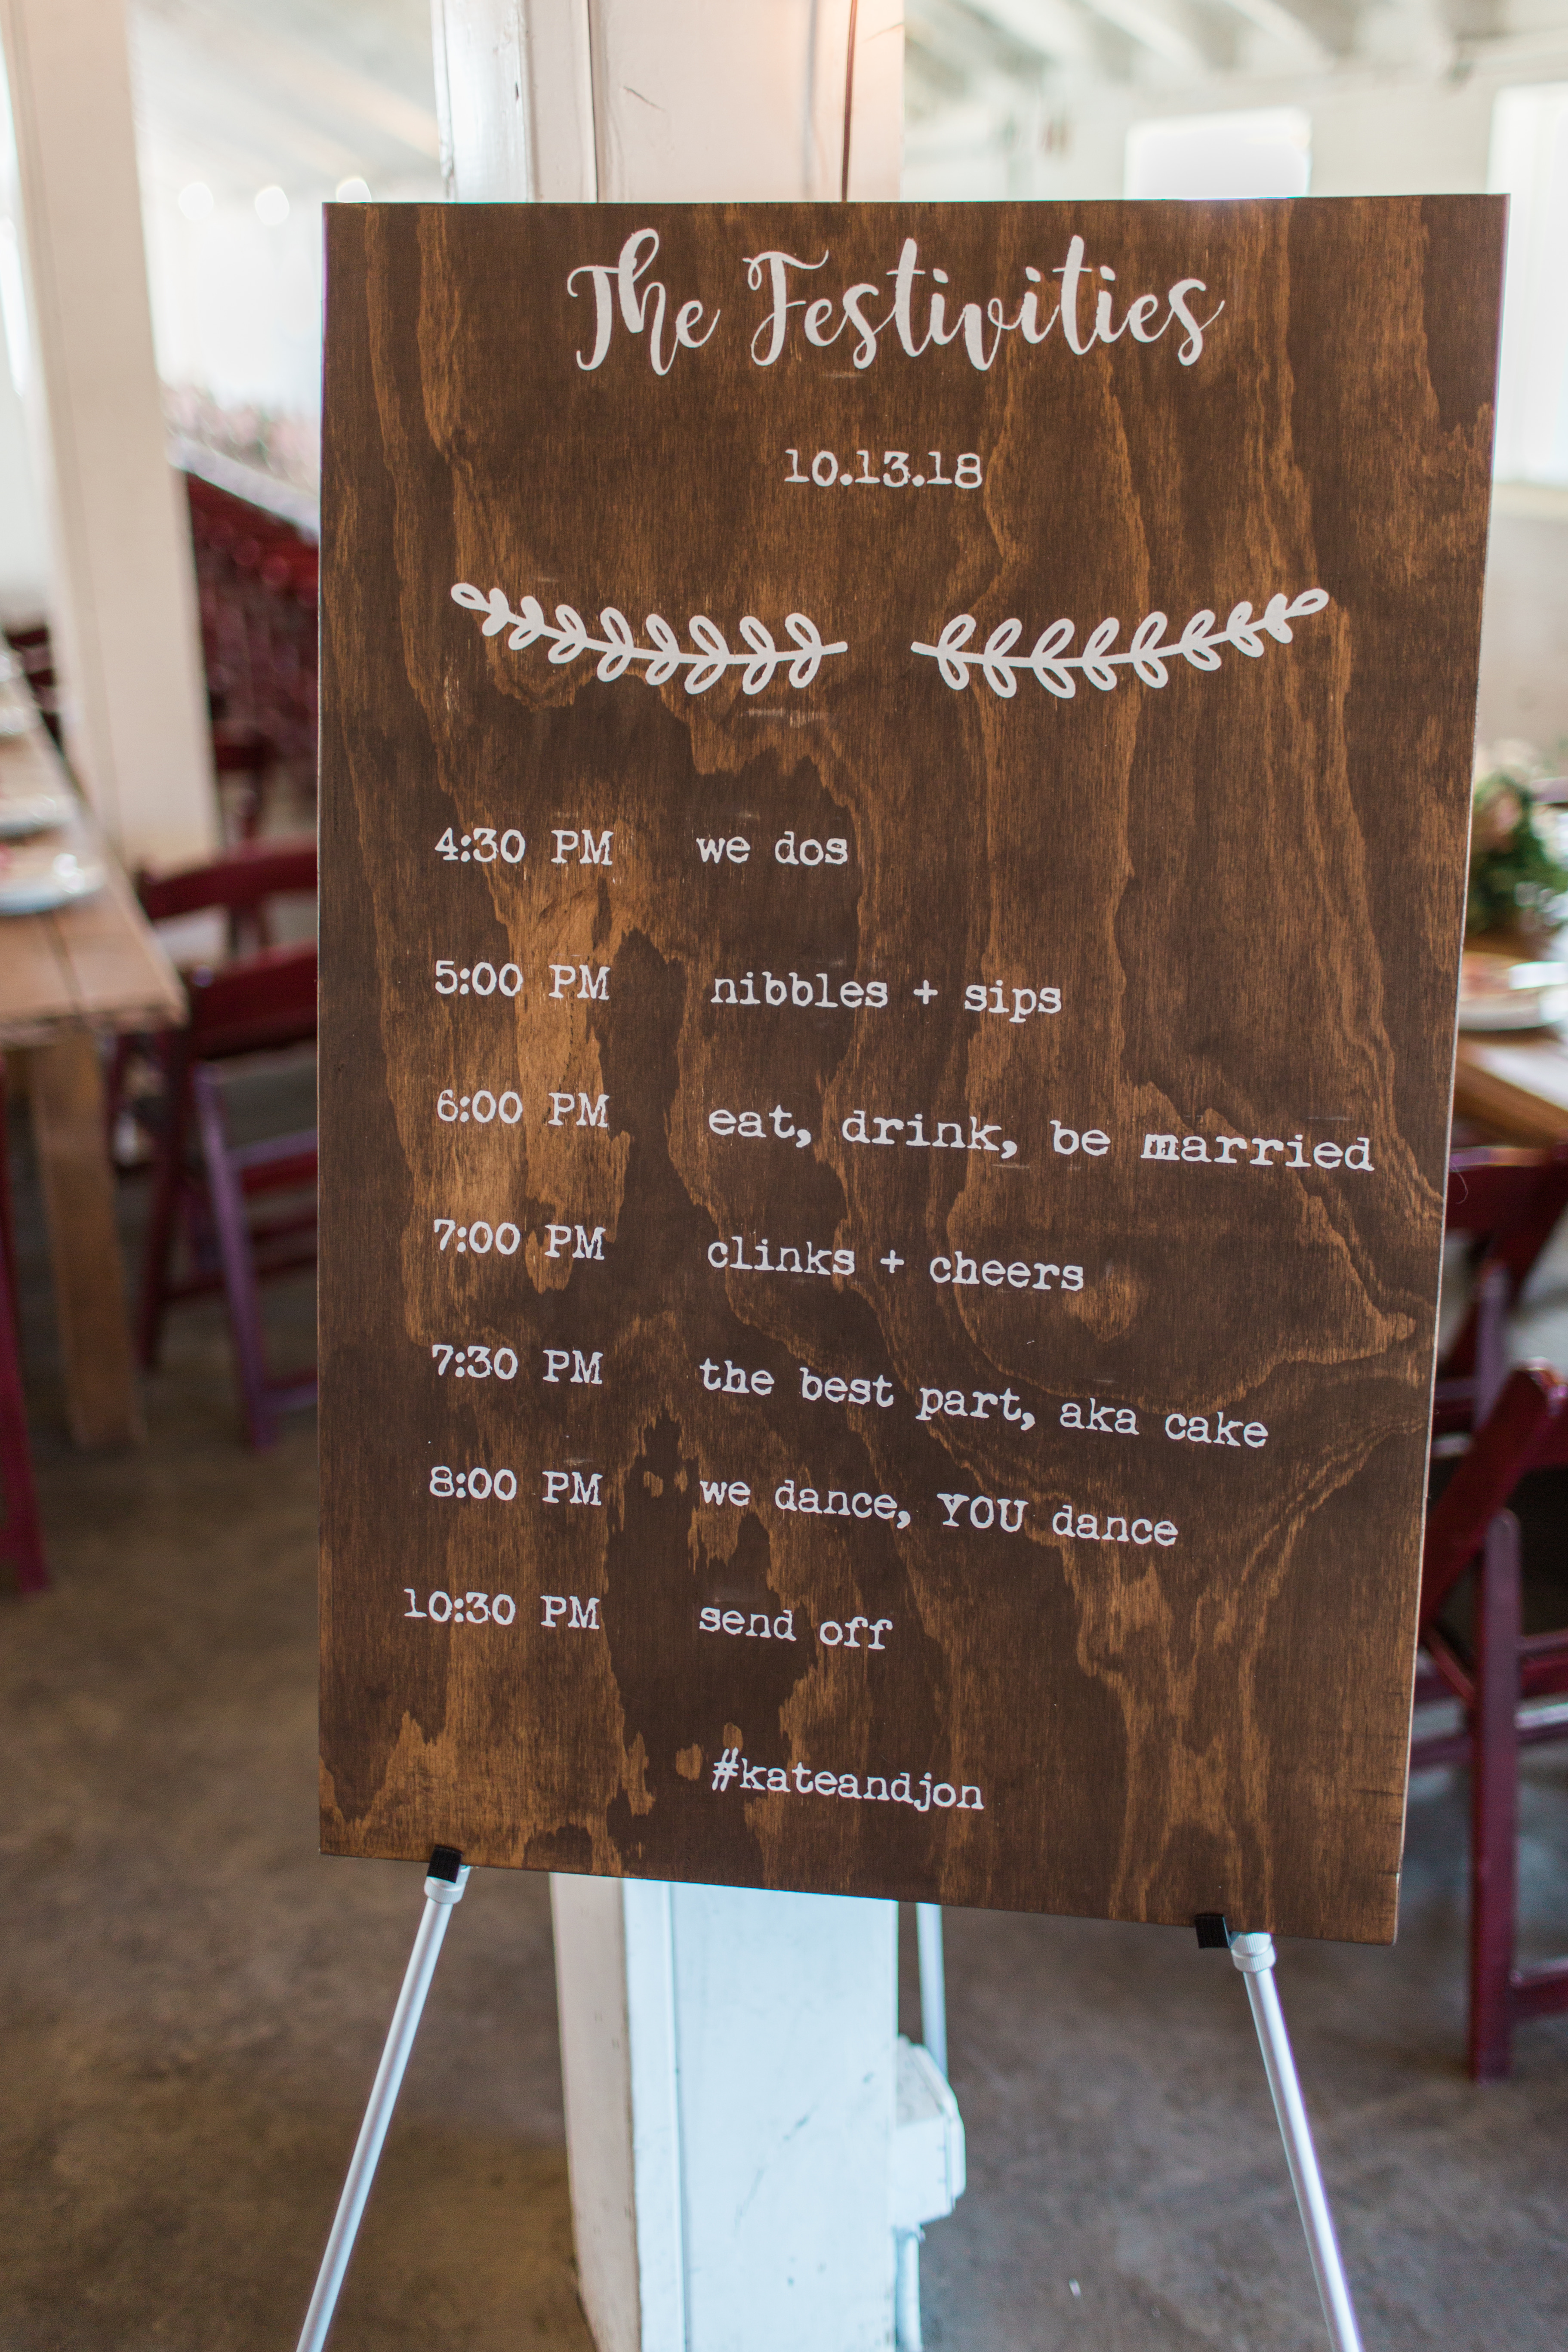 The Festivities
10.13.18
4:30 PM we dos
5:00 PM nibbles + sips
6:00 PM eat, drink, be married
7:00 PM clinks + cheers
7:30 PM the best part, aka cake
8:00 PM we dance, YOU dance
10:30 PM send off
#kateandjon